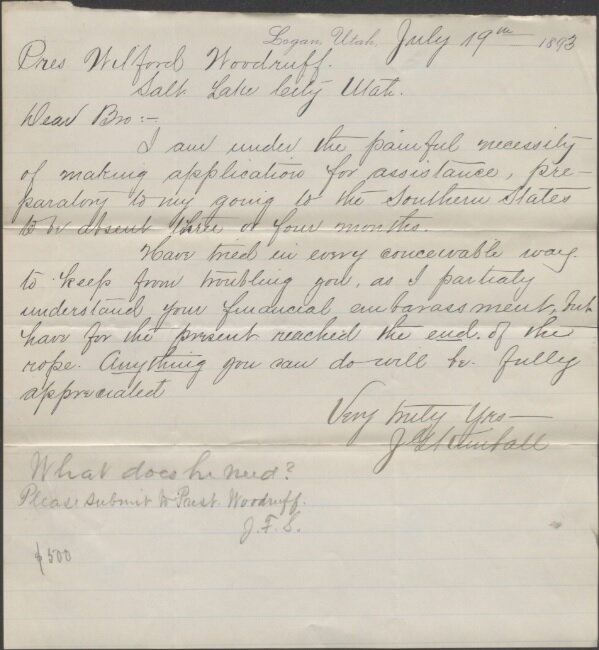 Logan, Utah, July 19th 1893
Pres Wilford Woodruff.
Salt Lake City Utah.
Dear Bro:-
I am under the painful necessity
of making application for assistance, pre-
paratory to my going to the Southern States
to be absent three or four months.
Have tried in every conceivable way
to keep from troubling you, as I partialy
understand your financial embarassment, but
have for the present reached the end of the
rope. Anything you can do will be fully
appreciated
Very truly Yrs—
J G Kimball
What does he need?
Please submit to Prest. Woodruff.
J. F. S.
$500